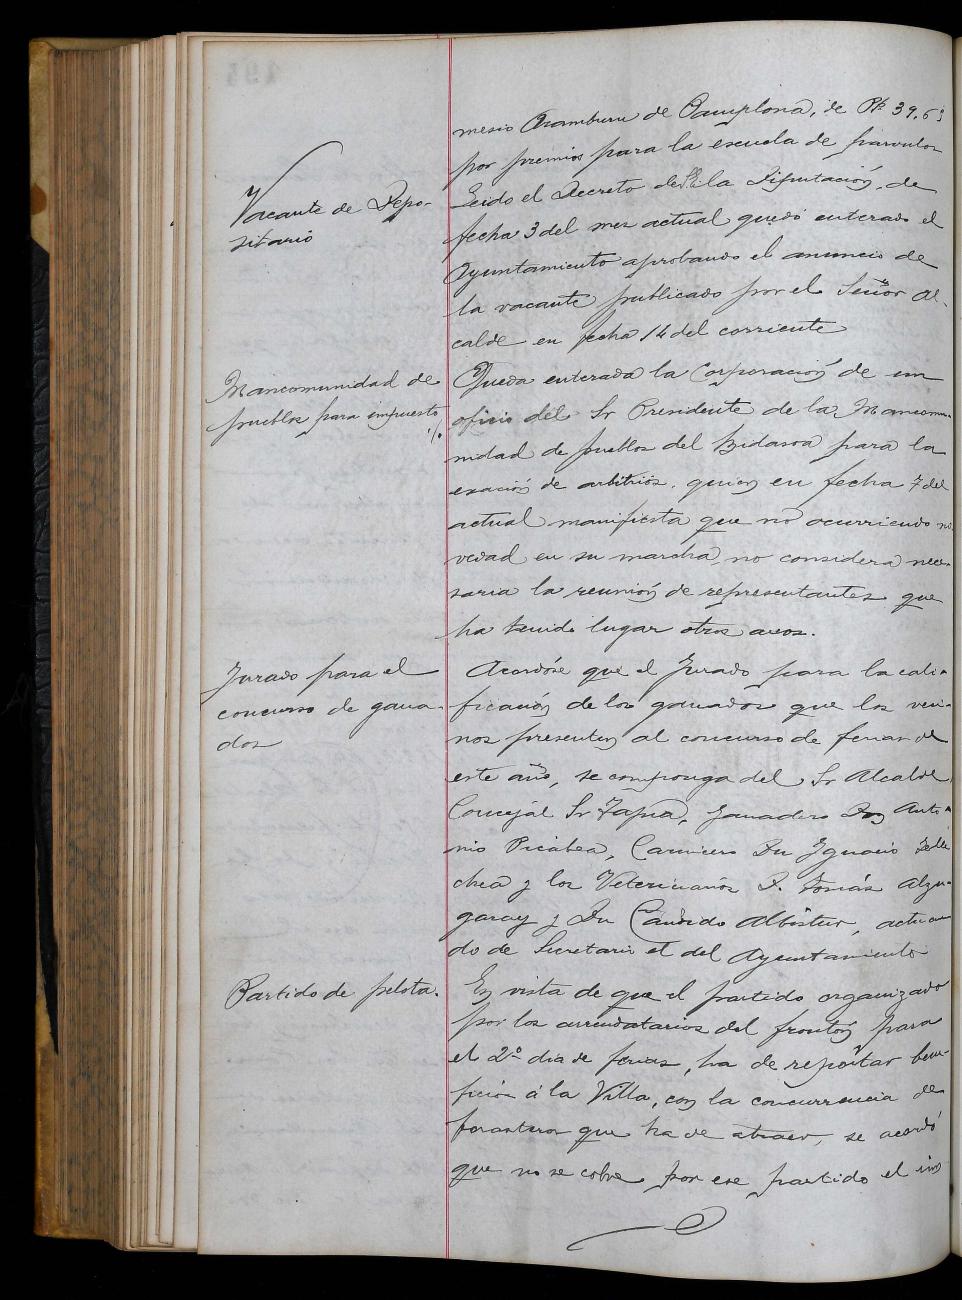 mesio Aramburu de Pamplona, de Pts 39,65
por premios para la escuela de párvulos
Vacante de Depo-
sitario
Leido el Decreto de la Diputación, de
fecha 3 del mes actual quedó enterado el
Ayuntamiento aprobando el anuncio de
la vacante publicado por el Señor Al-
calde en fecha 14 del corriente
Mancomunidad de
pueblos para impuesto
Queda enterada la Corporación de un
oficio del Sr Presidente de la Mancomu-
nidad de pueblos del Bidasoa para la
exación de arbitrios, quien en fecha 7 del
actual manifiesta que no ocurriendo no
vedad en su marcha, no considera nece-
saria la reunión de representantes que
ha tenido lugar otros años.
Jurado para el
concurso de gana-
dos
Acordóse que el Jurado para la cali-
ficación de los ganados que los veci-
nos presenten al concurso de ferias de
este año, se componga del Sr Alcalde,
Concejál Sr Tapia, ganadero Don Anto-
nio Picabea, Carnicero Dn Ignacio Telle
chea y los Veterinarios D. Tomás Alzu-
garay y Dn Candido Albistur, actuan
do de Secretario el del Ayuntamiento
Partido de pelota.
En vista de que el partido organizado
por los arrendatarios del frontón para
el 2º dia de ferias, ha de reportar bene-
ficios á la Villa, con la concurrencia de
forasteros que ha de atraer, se acordó
que no se cobre por ese partido el im